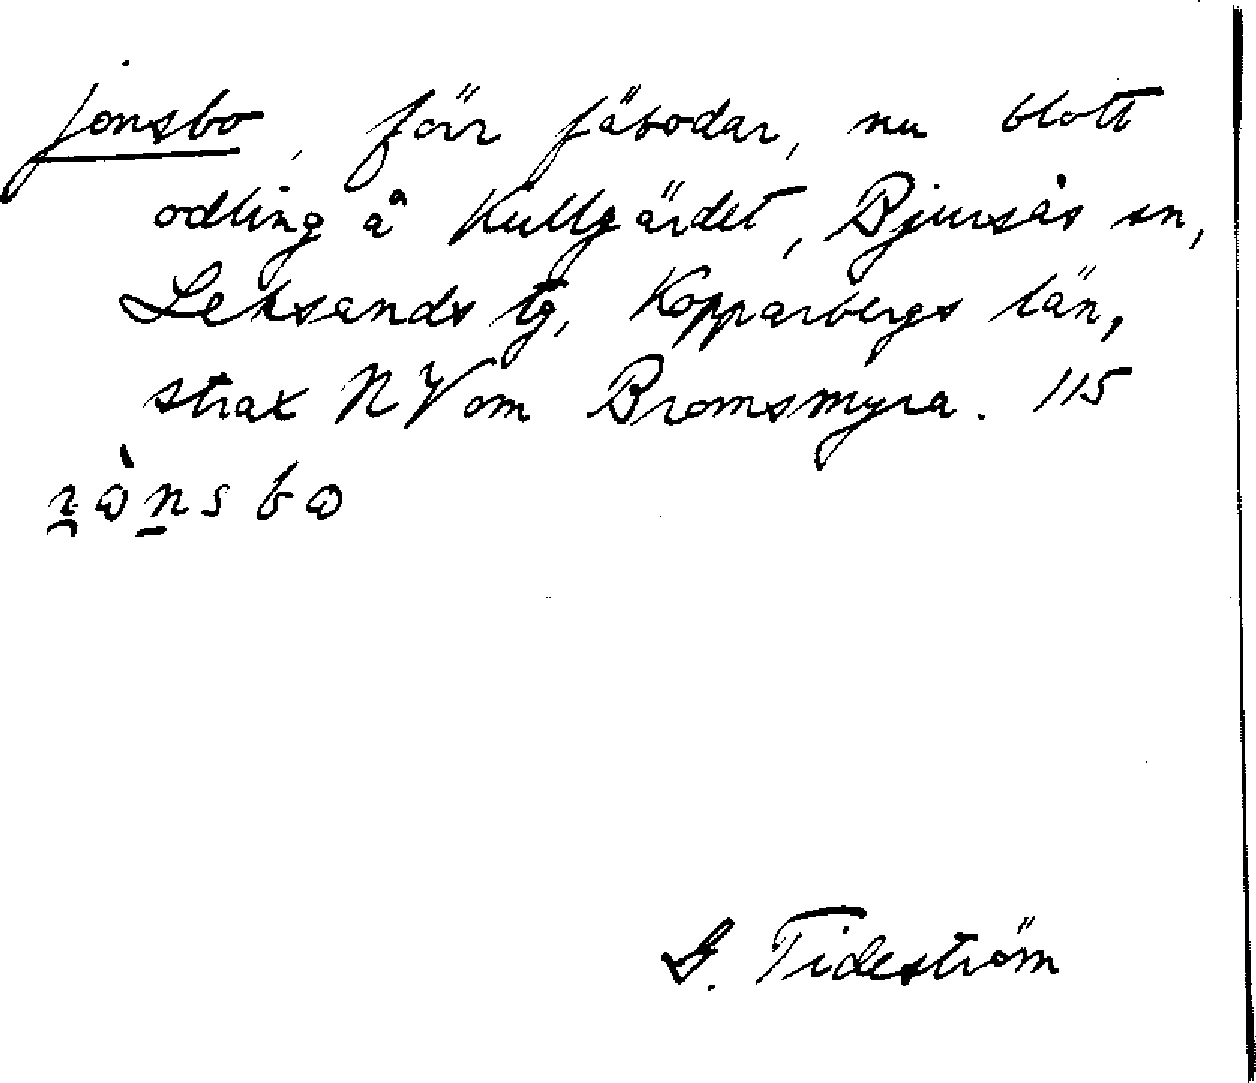 Jonsbo, förr fäbodar, nu blott
odling å Kullgärdet, Bjursås sn,
Leksands tg, Kopparbergs län,
strax NV om Bromsmyra. 115
G. Tideström